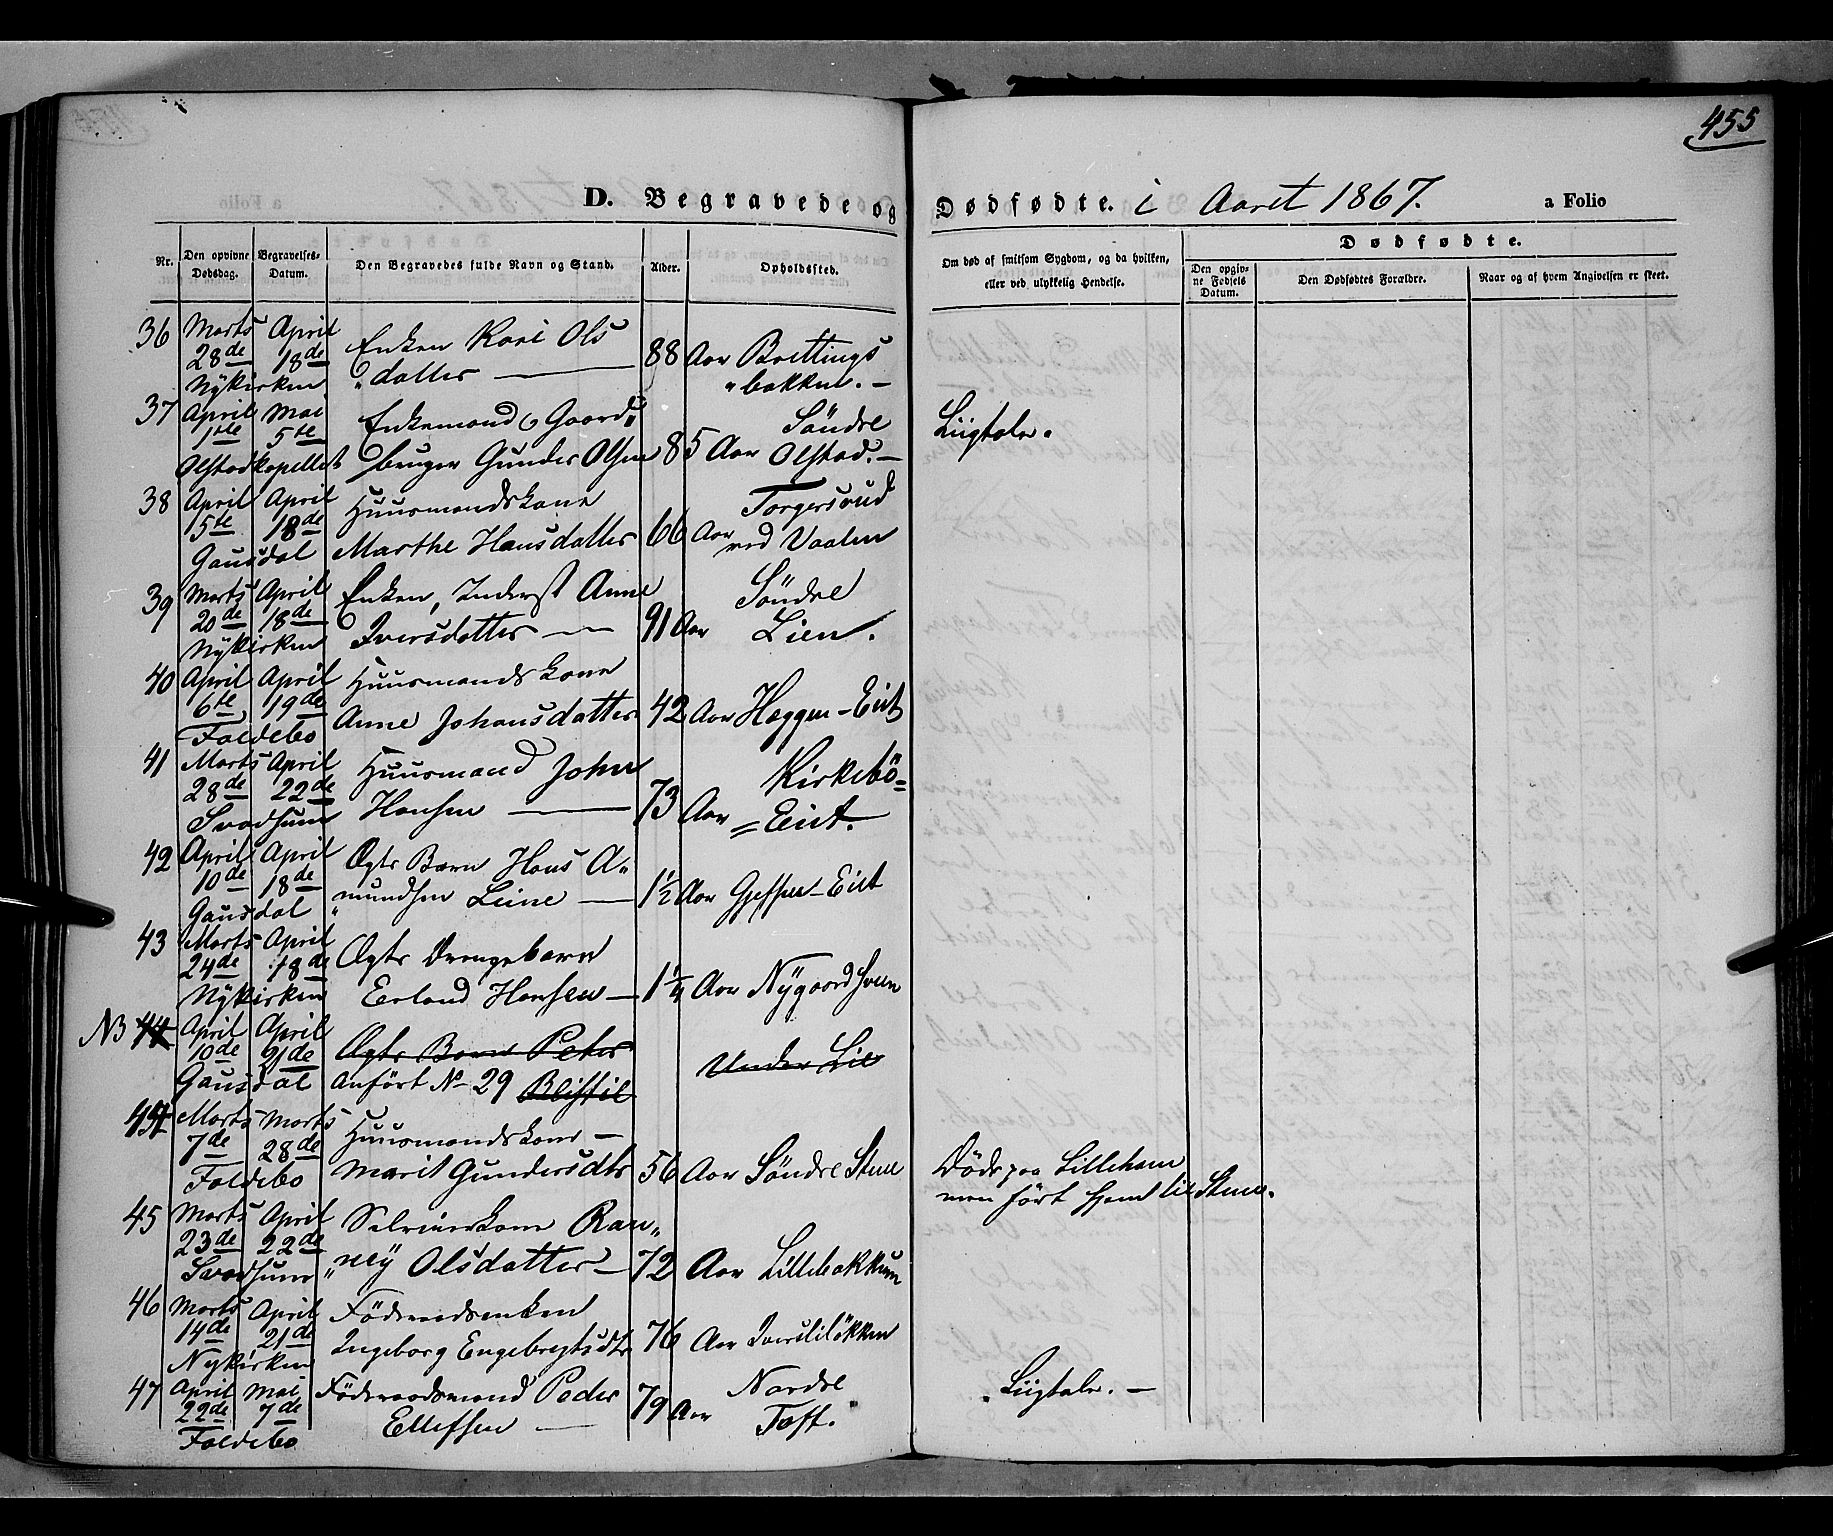 455
D. Begravede og Dødfødte. i Aaret 1867. a Folio
Nr. Den opgivne Dødsdag. Begravelses-Datum. Den Begravedes fulde Navn og Stand. Alder. Opholdssted. Om død af smitsom Sygdom, og da hvilken, eller ved ulykkelig Hendelse. Dødfødte. Den opgivne Fødsels Datum. Den Dødfødtes Forældre. Naar og af hvem Angivelsen er skeet.
36 Marts April Enken Kari Ols
28de 18de „datter — 88 Aar Brettings
Nykirken „bakken. —
37 April Mai Enkemand Gaard„ Søndre Liigtale.
1ste 5te bruger Gunder Olsen 85 Aar Olstad. —
Olstadkapellet
38 April April Huusmandskone Torgersrud
5te 18de Marthe Hansdatter 66 Aar ved Vaalen
Gausdal
39 Marts April Enken, Inderst Anne Søndre
20de 18de Iversdatter — 91 Aar Lien.
Nykirken
40 April April Huusmandskone
6te 19de Anne Johansdatter 42 Aar Heggen-Eiet
Foldebo
41 Marts April Huusmand John Kirkebö=
28de 22de Hansen — 73 Aar =Eiet.
Svadsum
42 April April Ægte Barn Hans A„
10de 18de „mundsen Liine — 1½ Aar Gjefsen-Eiet
Gausdal
43 Marts April Ægte Drengebarn
24de 18de Erland Hansen — 1¼ Aar Nygaard
Nykirken
NB 44 April April Ægte Barn Peter Under Lie
10de 21de
Gausdal anført No 29
454 Marts Marts Huusmandskone — Døde paa Lilleham
7de 28de Marit Gundersdtr 56 Aar Søndre Steen men ført hjem til Steen.
Foldebo
45 Marts April Selveierkone Ran„
23de 22de „ney Olsdatter — 72 Aar Lillebakkum
Svadsum
46 Marts April Föderaadsenken
14de 21de Ingeborg Engebregtsdtr 76 Aar Iversliløkken
Nykirken
47 April Mai Föderaadsmand Peder 79 Nordre Liigtale. —
22de 7de Ellefsen — Aar Toft.
Foldebo